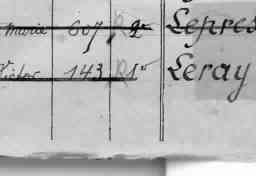 Marie 607 R 2º Lepres
Victor 143 R 1º Leray